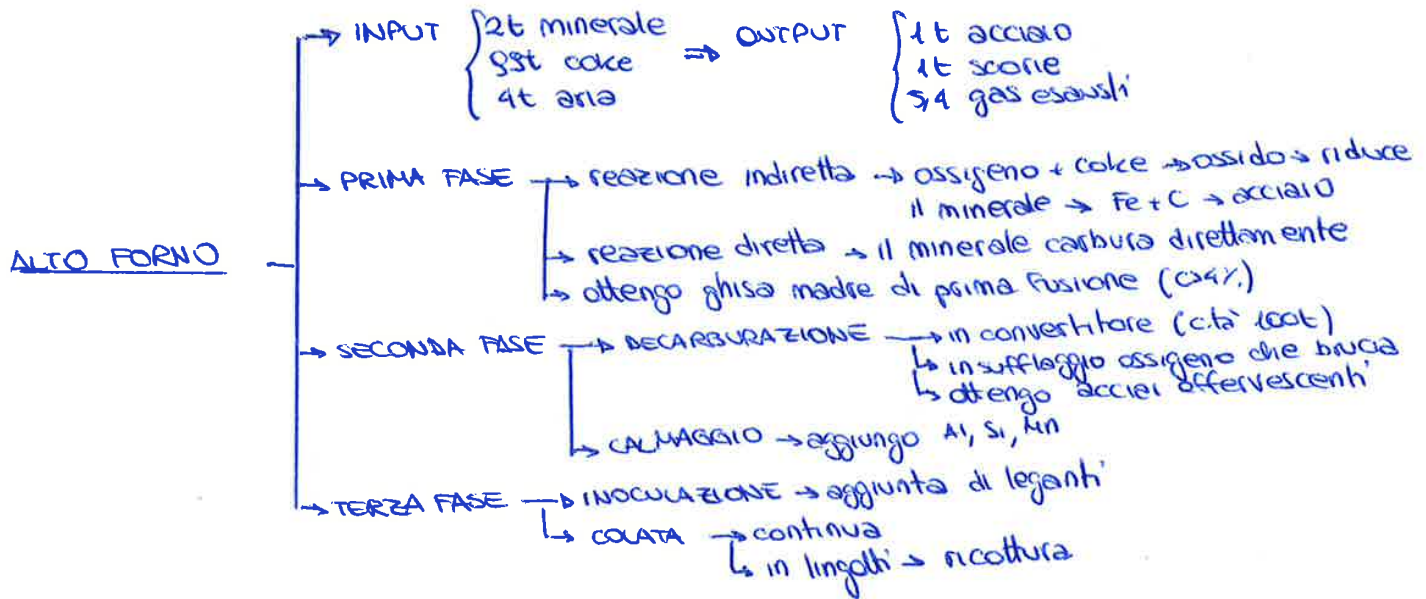 ALTO FORNO
→ INPUT { 2t minerale
0,9t coke
4t aria
⇒ OUTPUT { 1t acciaio
1t scorie
5,4 gas esausti
→ PRIMA FASE → reazione indiretta → ossigeno + coke → ossido → riduce
il minerale → Fe + C → acciaio
→ reazione diretta → il minerale carbura direttamente
→ ottengo ghisa madre di prima fusione (C>4%)
→ SECONDA FASE → DECARBURAZIONE → in convertitore (c.tà 100t)
↳ insufflaggio ossigeno che brucia
↳ ottengo acciei effervescenti
↳ CALMAGGIO → aggiungo Al, Si, Mn
→ TERZA FASE → INOCULAZIONE → aggiunta di leganti
↳ COLATA → continua
↳ in lingotti → ricottura